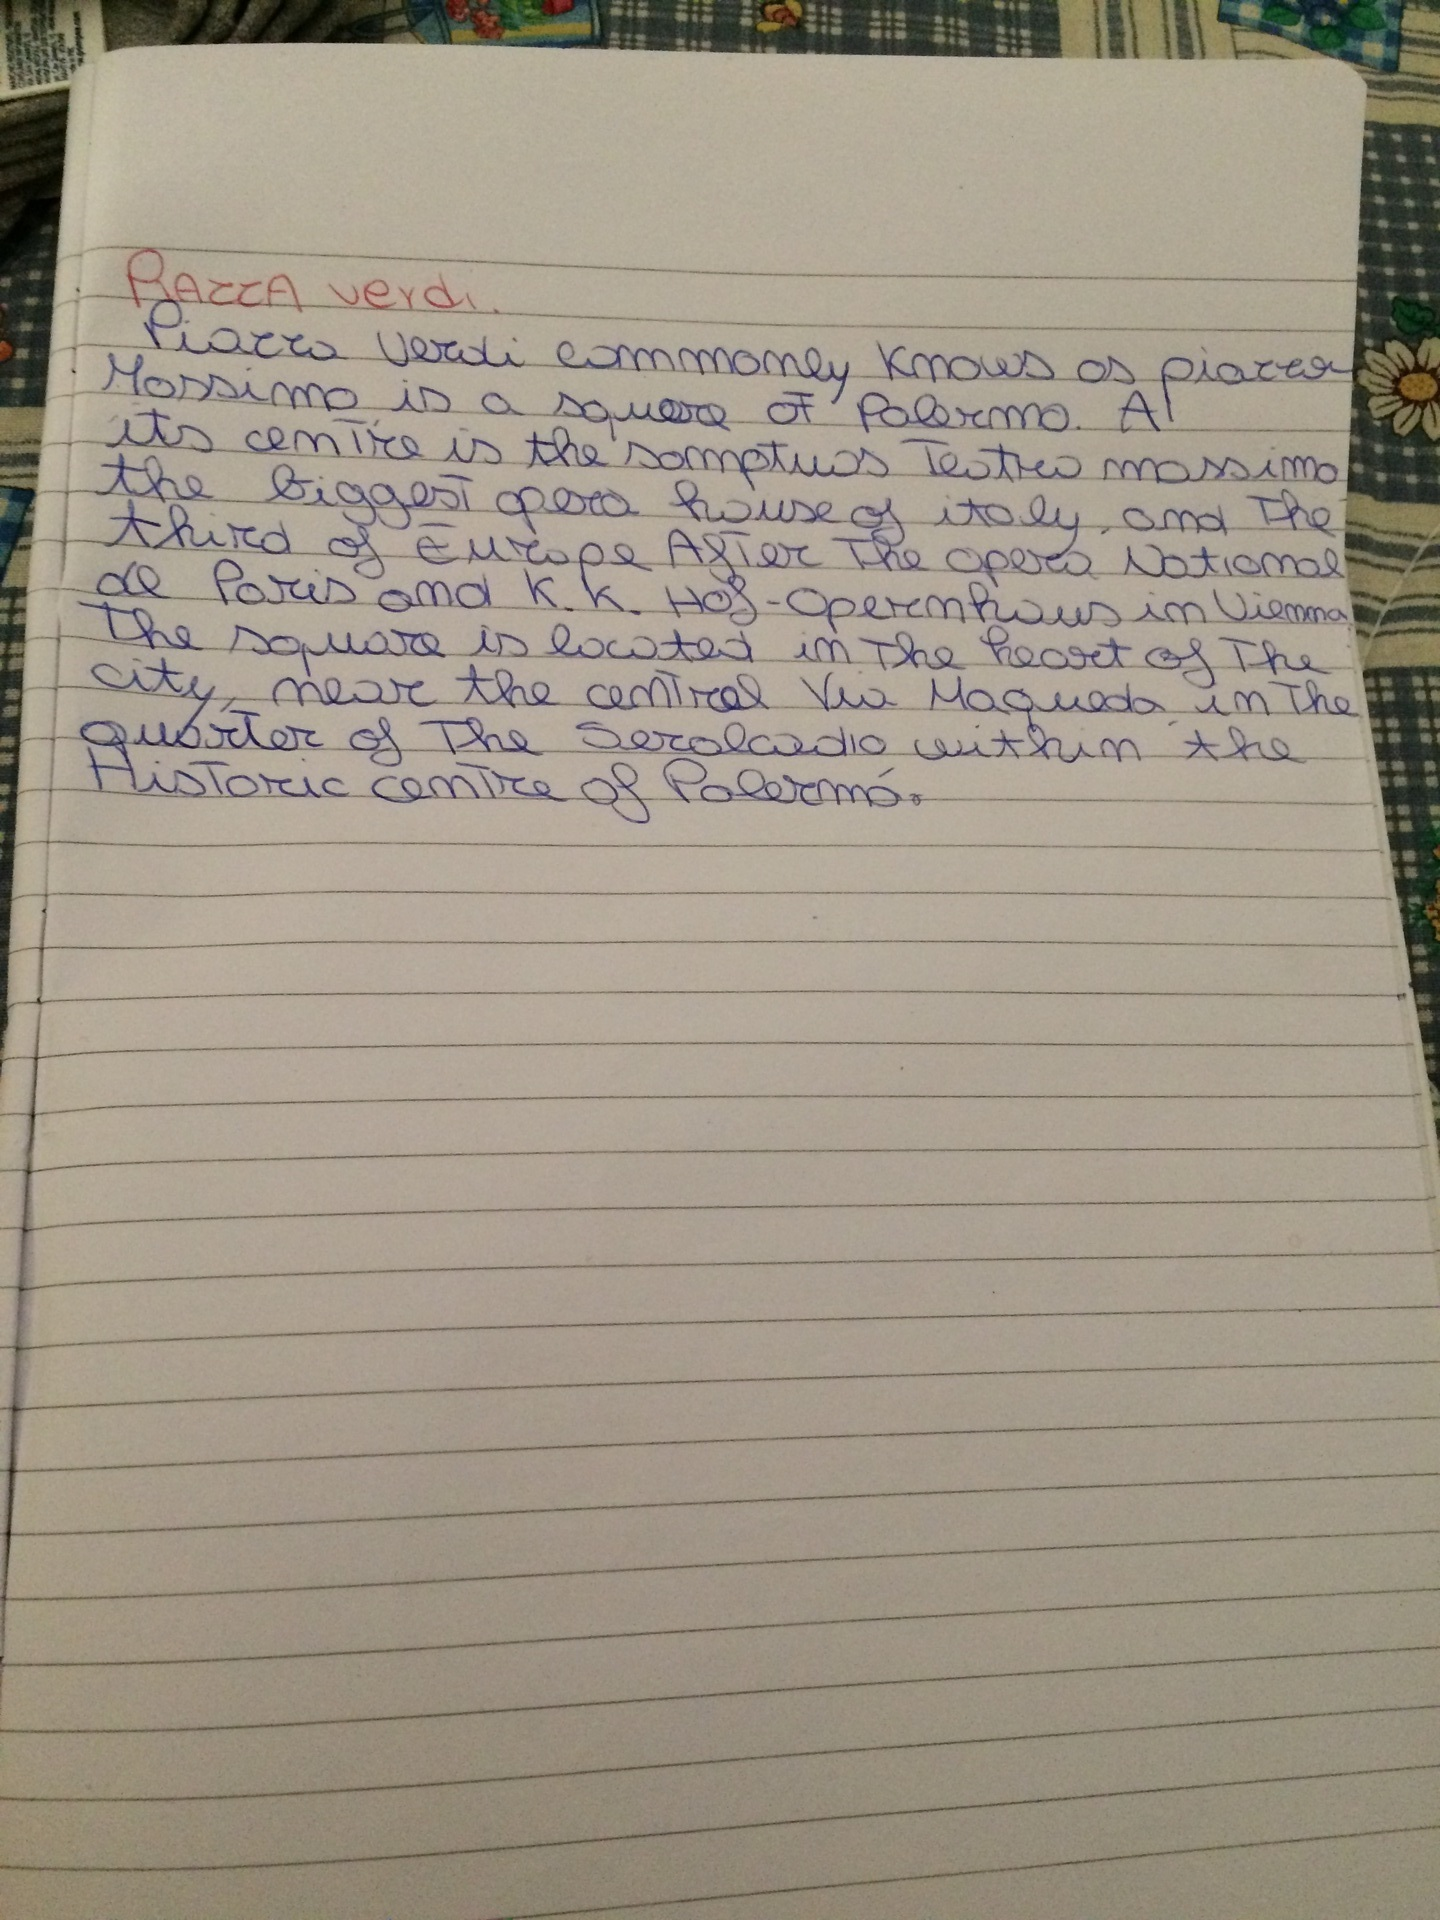 PIAZZA verdi.
Piazza Verdi commonly knows as piazza
Massimo is a square of Palermo. At
its centre is the somptuos Teatro massimo
the biggest opera house of italy, and The
third of Europe After The opera National
de Paris and K. K. Hof-Opernhaus in Vienna
The square is located in The heart of The
city, near the central Via Maqueda, in The
quarter of The Seralcadio within the
Historic centre of Palermo.